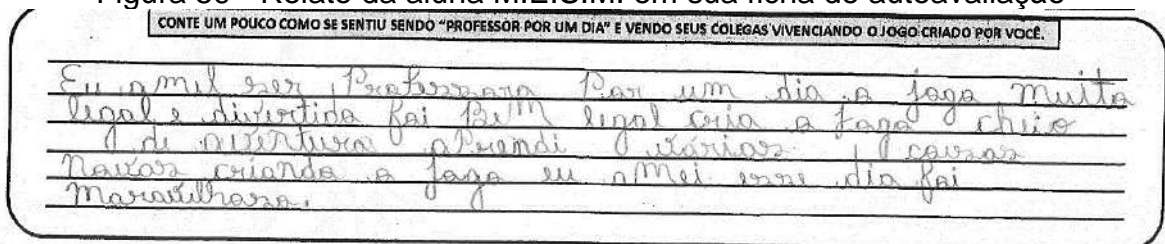 CONTE UM POUCO COMO SE SENTIU SENDO "PROFESSOR POR UM DIA" E VENDO SEUS COLEGAS VIVENCIANDO O JOGO CRIADO POR VOCÊ.
Eu amil ser Professora Por um dia o jogo muito
legal e divertido foi BeM legal cria o jogo cheio
de aventura aPrendi várias couzas
Novas criando o jogo eu aMei esse dia foi
Maravilhoso.